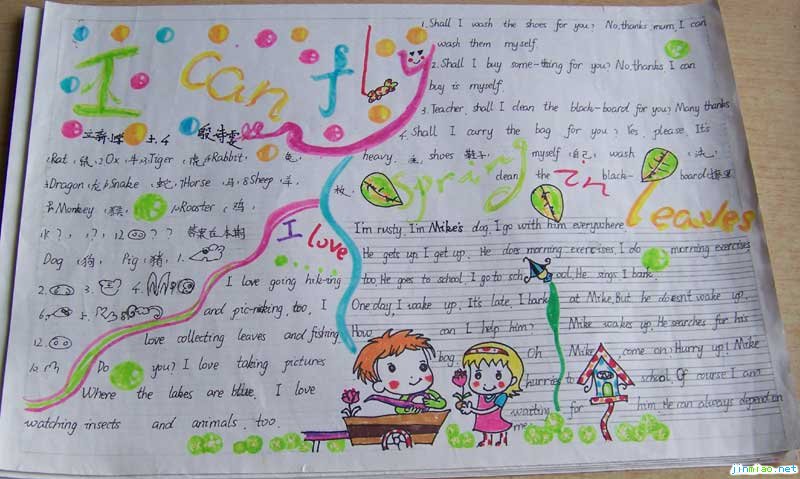 I can f
1.Shall I wash the shoes for you? No, thanks, mum, I can
wash them myself.
2.Shall I buy some-thing for you? No, thanks I can
buy is myself.
3.Teacher, shall I clean the black-board for you? Many thanks
4.Shall I carry the bag for you? Yes, please. It's
heavy. shoes 鞋子 myself 自己 wash 洗
clean the black- board
sprang in leaves
Rat 鼠 2 Ox 牛 Tiger 虎 Rabbit 兔
Dragon 龙 Snake 蛇 7 Horse 马 8 Sheep 羊
Monkey 猴 Rooster 鸡
Dog 狗 Pig 猪 1.
2. 3. 4.
I love
I love going hik-ing
and pic-niking, too, I
12. love collecting leaves and fishing
Do you? I love taking pictures
Where the lakes are blue. I love
watching insects and animals, too.
I'm rusty, I'm Mike's dog, I go with him everywhere
He gets up, I get up. He does morning exercises, I do morning exercises
too, He goes to school, I go to school, He sings I bark.
One day, I wake up. It's late, I bark at Mike, But he doesn't wake up.
How can I help him? Mike wakes up, He searches for his
bag. Oh Mike, come on! Hurry up! Mike
hurries to school, Of course I am
waiting for him, He can always depend on
me
jinmiao.net